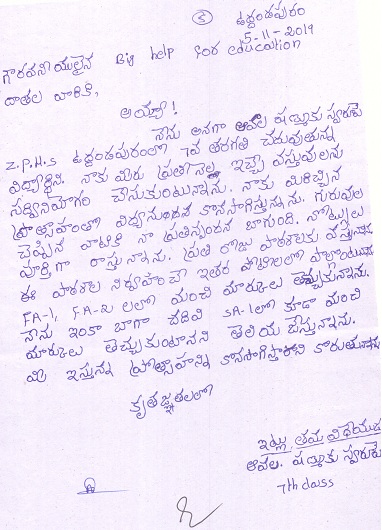 5
ఉద్దండపురం
5-11-2019
గౌరవనీయులైన Big help for education
దాతల వారికి,
అయ్యా!
నేను అనగా ఆవల షణ్ముక స్వరుణ
Z.P.H.S ఉద్దండపురంలో 7వ తరగతి చదువుతున్న
విద్యార్థిని. నాకు మీరు ప్రతినెల ఇచ్చే వస్తువులను
సద్వినియోగం చేసుకుంటున్నాను. నాకు మీరిచ్చిన
ప్రోత్సాహంతో విద్యనుభవ కొనసాగిస్తున్నను. గురువుల
చెప్పిన వాటికి నా ప్రతిస్పందన బాగుంది. నోట్సులు
పూర్తిగా రాస్తునానను. ప్రతి రోజు పాఠశాలకు వస్తున్నాను
ఈ పాఠశాల నిర్వహించే ఇతర పోటీలలో పాల్గొంటున్నను
FA-1, FA-2 లలో మంచి మార్కులు తెచ్చుకున్నాను.
నేను ఇంకా బాగా చదివి SA-1లో కూడా మంచి
మార్కులు తెచ్చుకుంటానని తెలియ చేస్తునాను.
మీ ఇస్తున్న ప్రోత్సాహాన్ని కొనసాగిస్తారని కోరుతున్నాను
కృతజ్ఞతలతో
ఇట్లు తమ విధేయుడు
ఆవల. షణ్ముక స్వరుణ
7th class